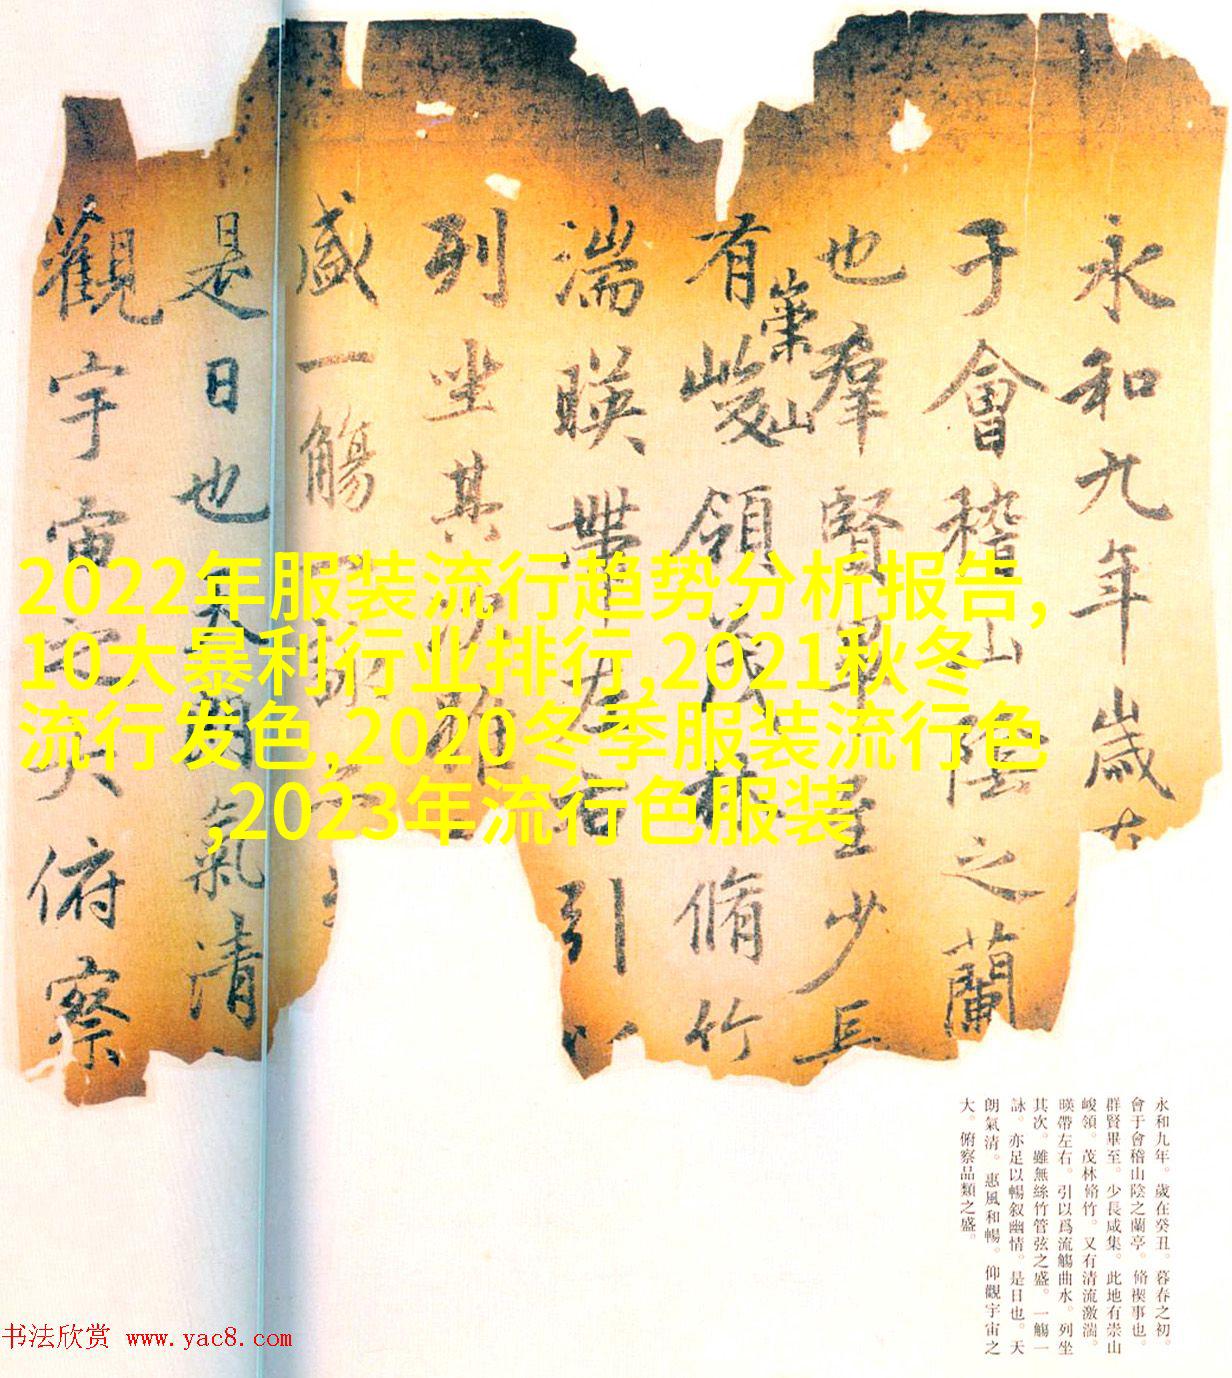 永和九年歲在
于會稽山陰之蘭
也羣賢畢至少長
有崇山峻領茂林脩竹
湍暎帶左右引以
列坐其次
盛一觴一詠亦
是日也天朗氣清
觀宇宙之大俯察
2022年服装流行趋势分析报告,
10大暴利行业排行,2021秋冬
流行发色,2020冬季服装流行色
,2023年流行色服装
永和九年。歲在癸丑。暮春之初。
會于會稽山陰之蘭亭。脩禊事也。
群賢畢至。少長咸集。此地有崇山
峻領。茂林脩竹。又有清流激湍。
暎帶左右。引以爲流觴曲水。列坐
其次。雖無絲竹管弦之盛。一觴一
詠。亦足以暢叙幽情。是日也。天
朗氣清。惠風和暢。仰觀宇宙之
大。俯察品類之盛。
书法欣赏 www.yac8.com